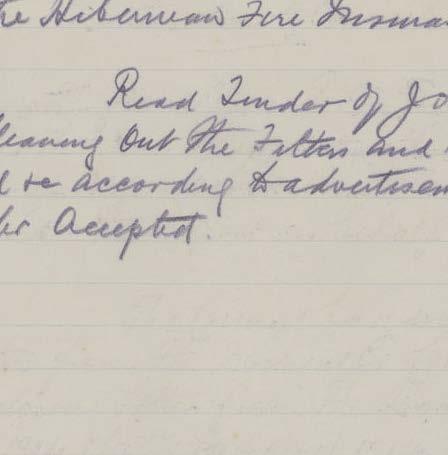 the Hibernian Fire Insura
Read Tender of Jo
leaning Out the Filters and
&c according to advertisem
Accepted.